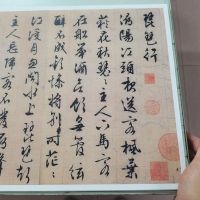 琵琶行
潯陽江頭夜送客楓葉
荻花秋瑟瑟主人下馬客
在船舉酒欲飲無管絃
醉不成歡慘將別別時茫茫
江浸月忽聞水上琵琶聲
主人忘歸客不發尋聲